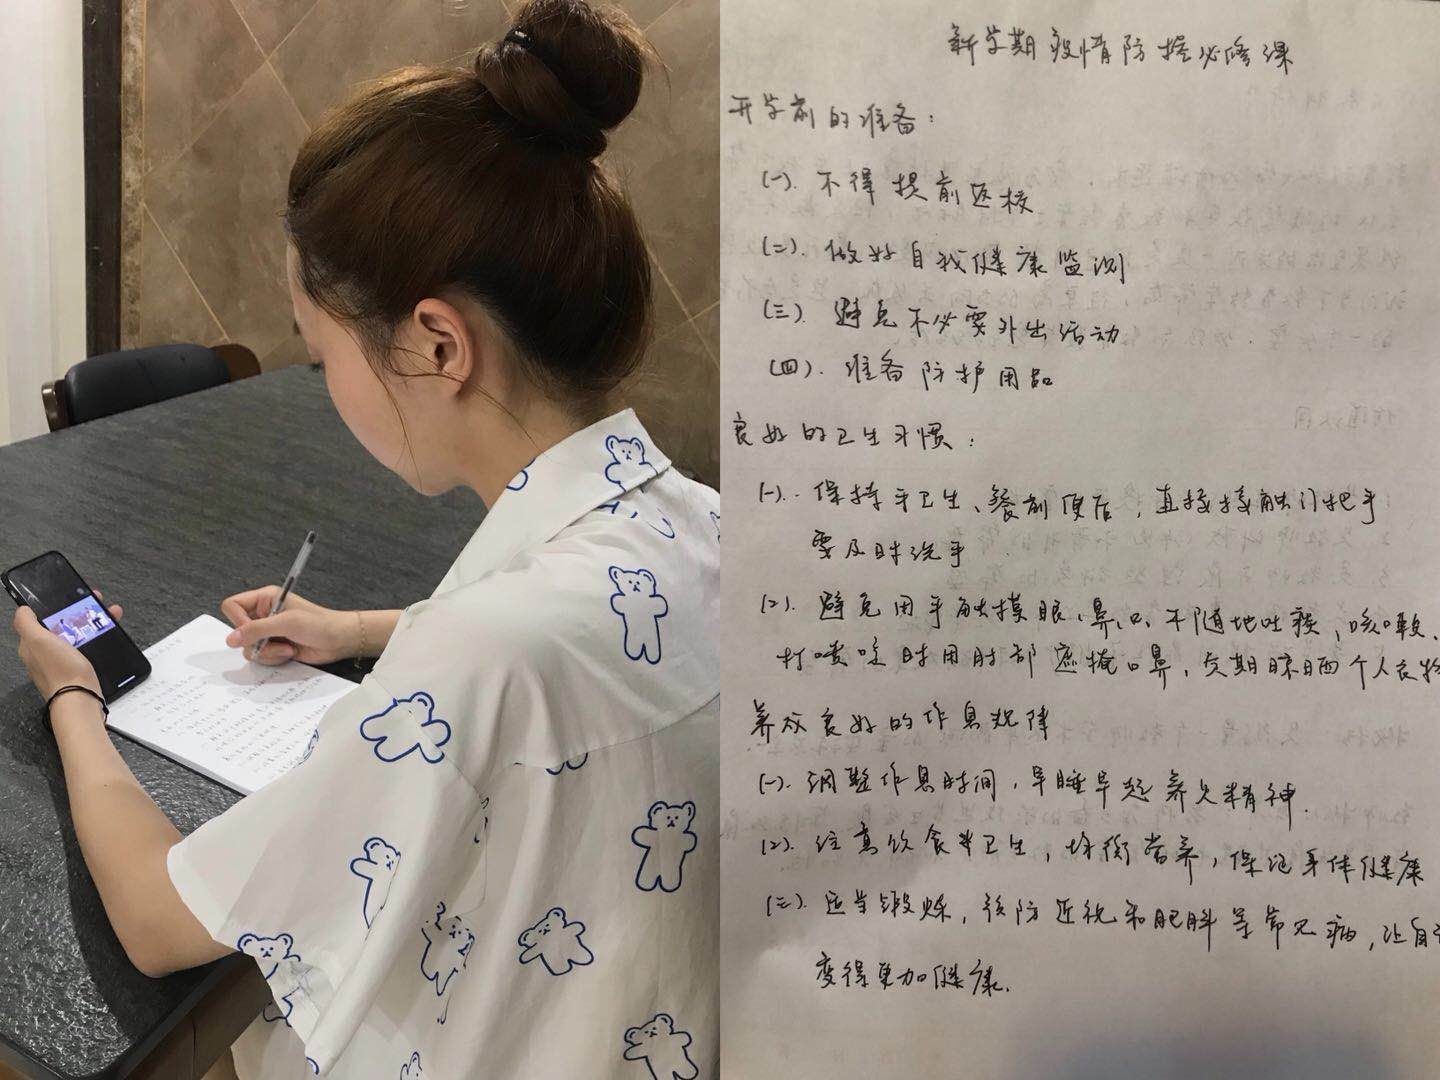 新学期疫情防控必修课
开学前的准备：
(一). 不得提前返校
(二). 做好自我健康监测
(三). 避免不必要外出活动
(四). 准备防护用品
良好的卫生习惯：
(一). 保持手卫生、餐前便后，直接接触门把手
要及时洗手
(二). 避免用手触摸眼、鼻、口、不随地吐痰，咳嗽、
打喷嚏时用肘部遮掩口鼻，定期晾晒个人衣物
养成良好的作息规律
(一). 调整作息时间，早睡早起养足精神.
(二). 注意饮食卫生，均衡营养，保证身体健康
(三). 适当锻炼，预防近视和肥胖等常见病，让自
变得更加健康.